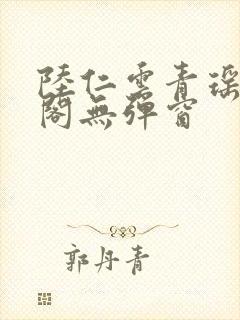 陸仁雲青瑶
閣無彈窗
郭丹青